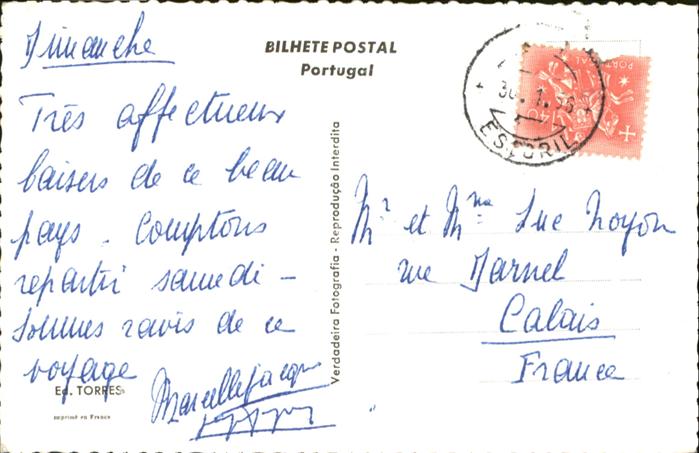 Dimanche
Très affectueux
baisers de ce beau
pays. Comptons
repartir samedi –
Sommes ravis de ce
voyage
Marcelle Jacques
Ed. TORRES
imprimé en France
BILHETE POSTAL
Portugal
Verdadeira Fotografia - Reprodução Interdita
PORTUGAL
1$40
30. 1. 56
ESTORIL
Mr et Mme Luc Noyon
rue Darnel
Calais
France